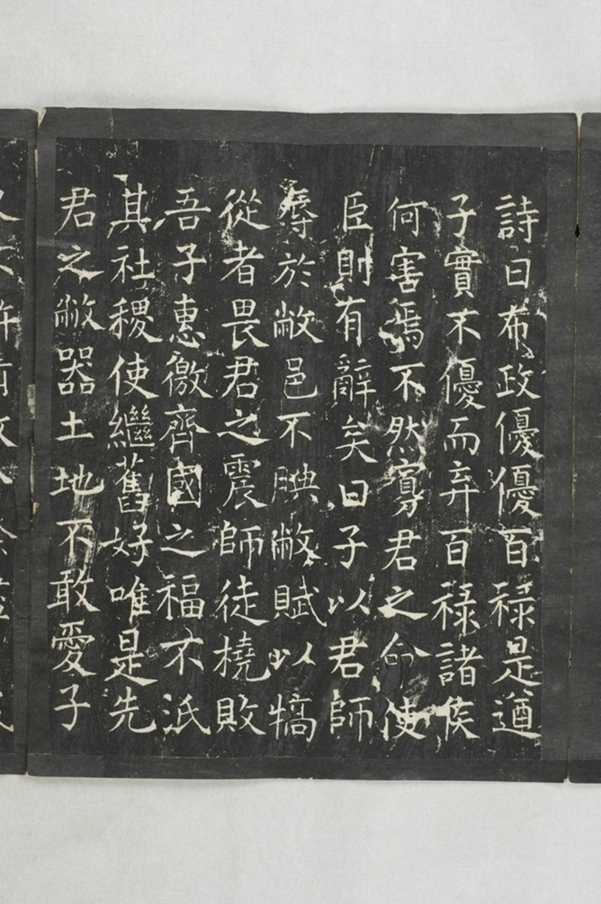 詩曰布政優優百祿是遒
子實不優而弃百祿諸侯
何害焉不然寡君之命使
臣則有辭矣曰子以君師
辱於敝邑不腆敝賦以犒
從者畏君之震師徒橈敗
吾子惠徼齊國之福不泯
其社稷使繼舊好唯是先
君之敝器土地不敢愛子